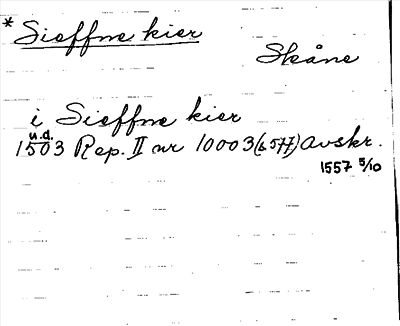 * Sieffne kier
Skåne
i Sieffne kier
u.d.
1503 Rep. II nr 10003 (s 577) Avskr.
1557 5/10